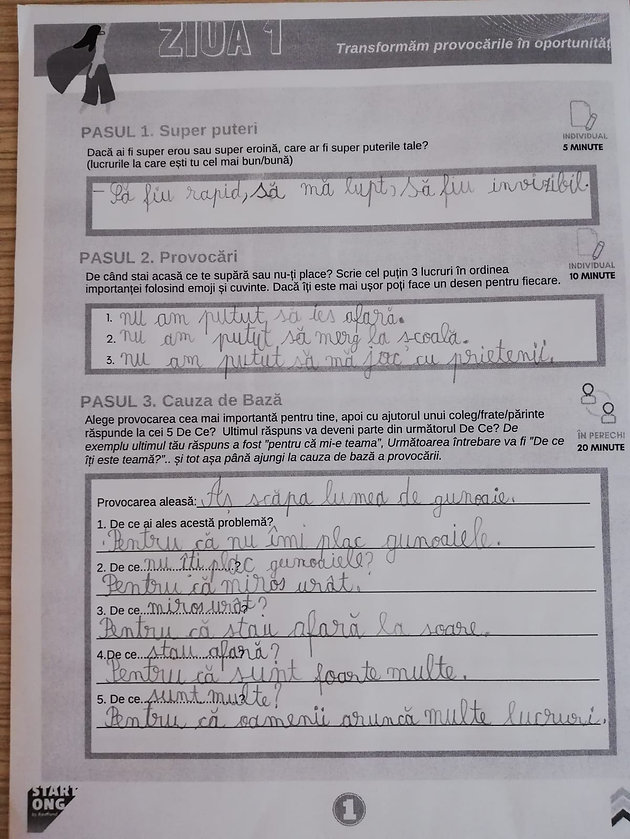 ZIUA 1
Transformăm provocările în oportunităț
PASUL 1. Super puteri
INDIVIDUAL
5 MINUTE
Dacă ai fi super erou sau super eroină, care ar fi super puterile tale?
(lucrurile la care ești tu cel mai bun/bună)
- Să fiu rapid, să mă lupt, să fiu invizibil.
PASUL 2. Provocări
INDIVIDUAL
10 MINUTE
De când stai acasă ce te supără sau nu-ți place? Scrie cel puțin 3 lucruri în ordinea
importanței folosind emoji și cuvinte. Dacă îți este mai ușor poți face un desen pentru fiecare.
1. nu am putut să ies afară.
2. nu am putut să merg la scoală.
3. nu am putut să mă joc cu prietenii.
PASUL 3. Cauza de Bază
ÎN PERECHI
20 MINUTE
Alege provocarea cea mai importantă pentru tine, apoi cu ajutorul unui coleg/frate/părinte
răspunde la cei 5 De Ce? Ultimul răspuns va deveni parte din următorul De Ce? De
exemplu ultimul tău răspuns a fost "pentru că mi-e teama", Următoarea întrebare va fi "De ce
îți este teamă?".. și tot așa până ajungi la cauza de bază a provocării.
Provocarea aleasă: Aș scăpa lumea de gunoaie.
1. De ce ai ales acestă problemă?
Pentru că nu îmi plac gunoaiele.
2. De ce...nu îti plac gunoaiele?
Pentru că miros urât.
3. De ce...miros urât?
Pentru că stau afară la soare.
4.De ce...stau afară?
Pentru că sunt foarte multe.
5. De ce...sunt multe?
Pentru că oamenii aruncă multe lucruri.
START
ONG
by Kaufland
1